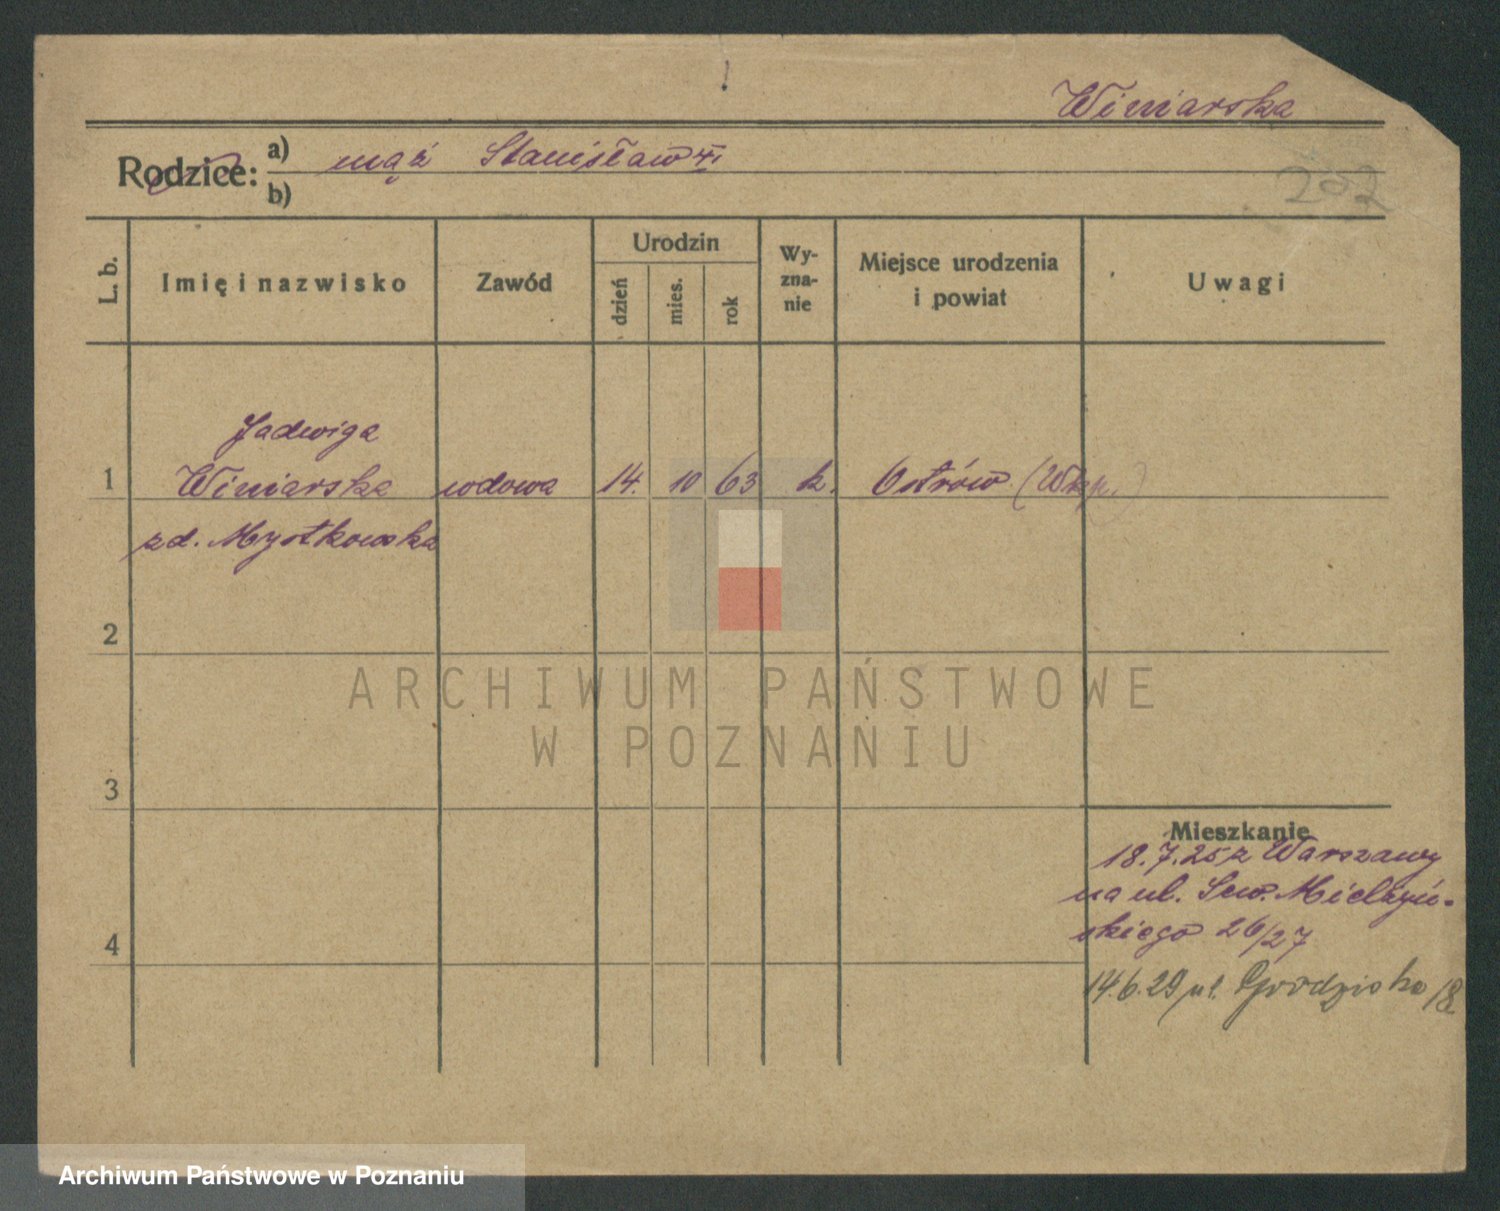 Winiarska
Rodzice: a) mąż Stanisław
b)
202
L. b.
Imię i nazwisko
Zawód
Urodzin
dzień
mies.
rok
Wy-
zna-
nie
Miejsce urodzenia
i powiat
Uwagi
Jadwiga
1 Winiarska wdowa 14. 10 63 k. Ostrów (Wlkp.)
zd. Mystkowska
2
3
4
Mieszkanie
18.7.25 z Warszawy
na ul. Sew. Mielżyń-
skiego 26/27
14.6.29 ul. Grodziska 18
ARCHIWUM PAŃSTWOWE
W POZNANIU
Archiwum Państwowe w Poznaniu